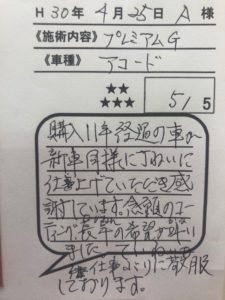 H 30年 4月 25日 A 様
《施術内容》 プレミアムG
《車種》 アコード
★★
★★★ 5/5
購入11年経過の車が
新車同様にきれいに
仕上げていただき感
謝しています。念願のコー
ティング、長年の希望がかない
ました。ていねいな
仕事ぶりに敬服
しております。